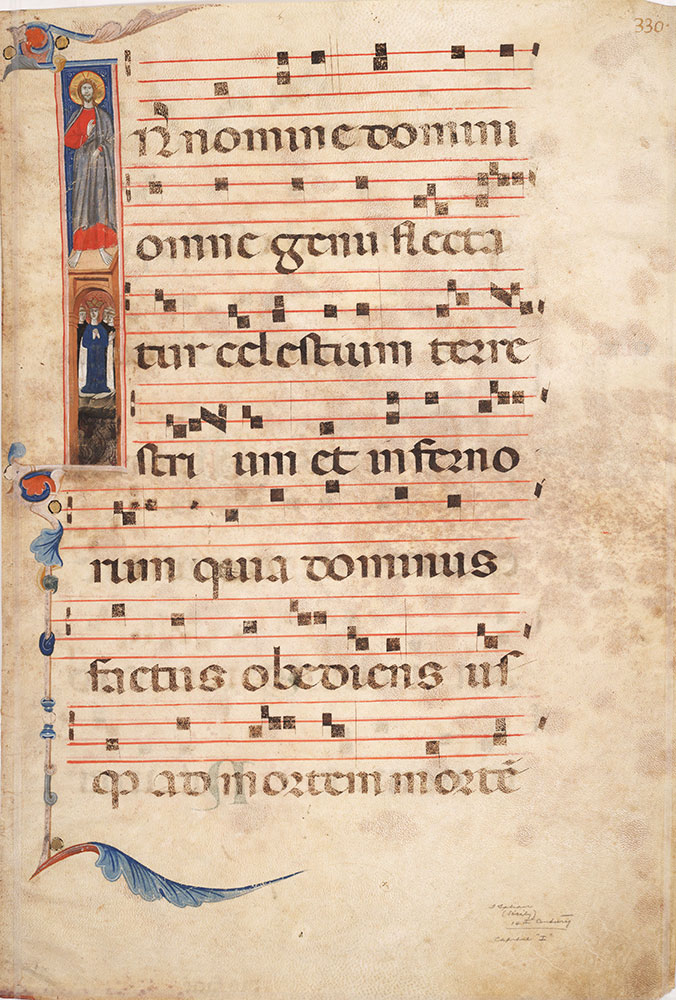 330.
IN nomine domini
omne genu flecta
tur celestium terre
stri um et inferno
rum quia dominus
factus obediens us
q ad mortem mortē
Italian
(Sicily)
14th Century
Capital "I"